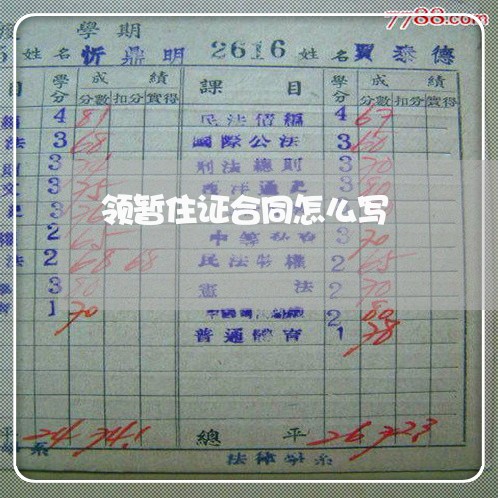 7788.com
學期
姓名 忻鼎明 2616 姓名 賈泰德
目 學分 成績 課目 學分 成績
分數 扣分 實得 分數 扣分 實得
4 81 民法債編 4 67
法 3 68 國際公法 3 60
3 刑法總則 3 70
3 75 3 80
领暂住证合同怎么写
2 65 3 70
法 2 68 68 民法物權 2 65
3 80 憲法 2 70
1 70 2 80
普通體育 1 78
平 24 74.1 總平 26 72.3
系 法律學系